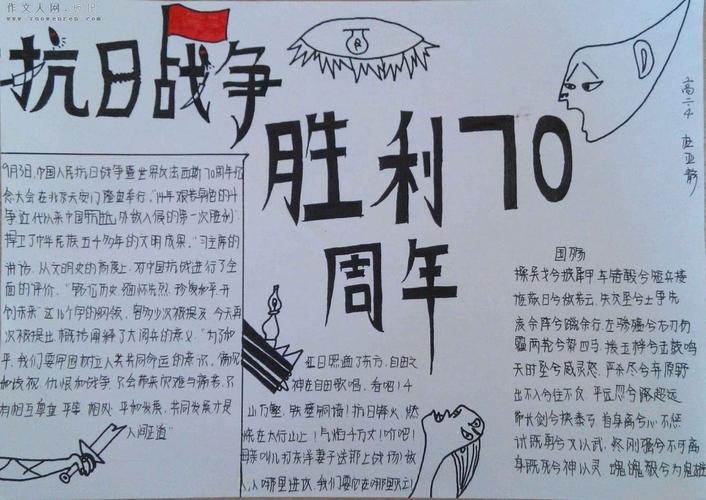 作文人网
www.zuowenren.com
抗日战争
胜利70
周年
高二4
9月3日,中国人民抗日战争暨世界反法西斯70周年纪
念大会在北京天安门隆重举行。"14年艰苦卓绝的斗
争近代以来中国抵抗外敌入侵的第一次胜利",
捍卫了中华民族五千多年的文明成果,"习主席的
讲话,从文明史的高度上,对中国抗战进行了全
面的评价。"铭记历史、缅怀先烈、珍爱和平、开
创未来"这16个字的网领,曾多少次被提及,今天再
次被提出,概括阐释了大阅兵的意义。"为了和
平,我们要牢固树立人类共同命运的意识,偏见
和歧视、仇恨和战争,只会带来灾难与痛苦,只
有相互尊重、平等相处、和平发展,共同发展才是
人间正道"
红日照遍了东方,自由之
神在自由歌唱,看吧!千
山万壑,铁壁铜墙!抗日烽火,燃
烧在太行山上!气焰千万丈!听吧!
母亲叫儿打东洋,妻子送郎上战场!敌
人从哪里进攻,我们要他在哪里灭亡!
国殇
操吴戈兮披犀甲,车错毂兮短兵接
旌蔽日兮敌若云,矢交坠兮士争先
凌余阵兮躐余行,左骖殪兮右刃伤
霾两轮兮絷四马,援玉枹兮击鼓鸣
天时坠兮威灵怒,严杀尽兮弃原野
出不入兮往不反,平远忽兮路超远
带长剑兮挟秦弓,首身离兮心不惩
诚既勇兮又以武,终刚强兮不可凌
身既死兮神以灵,魂魄毅兮为鬼雄